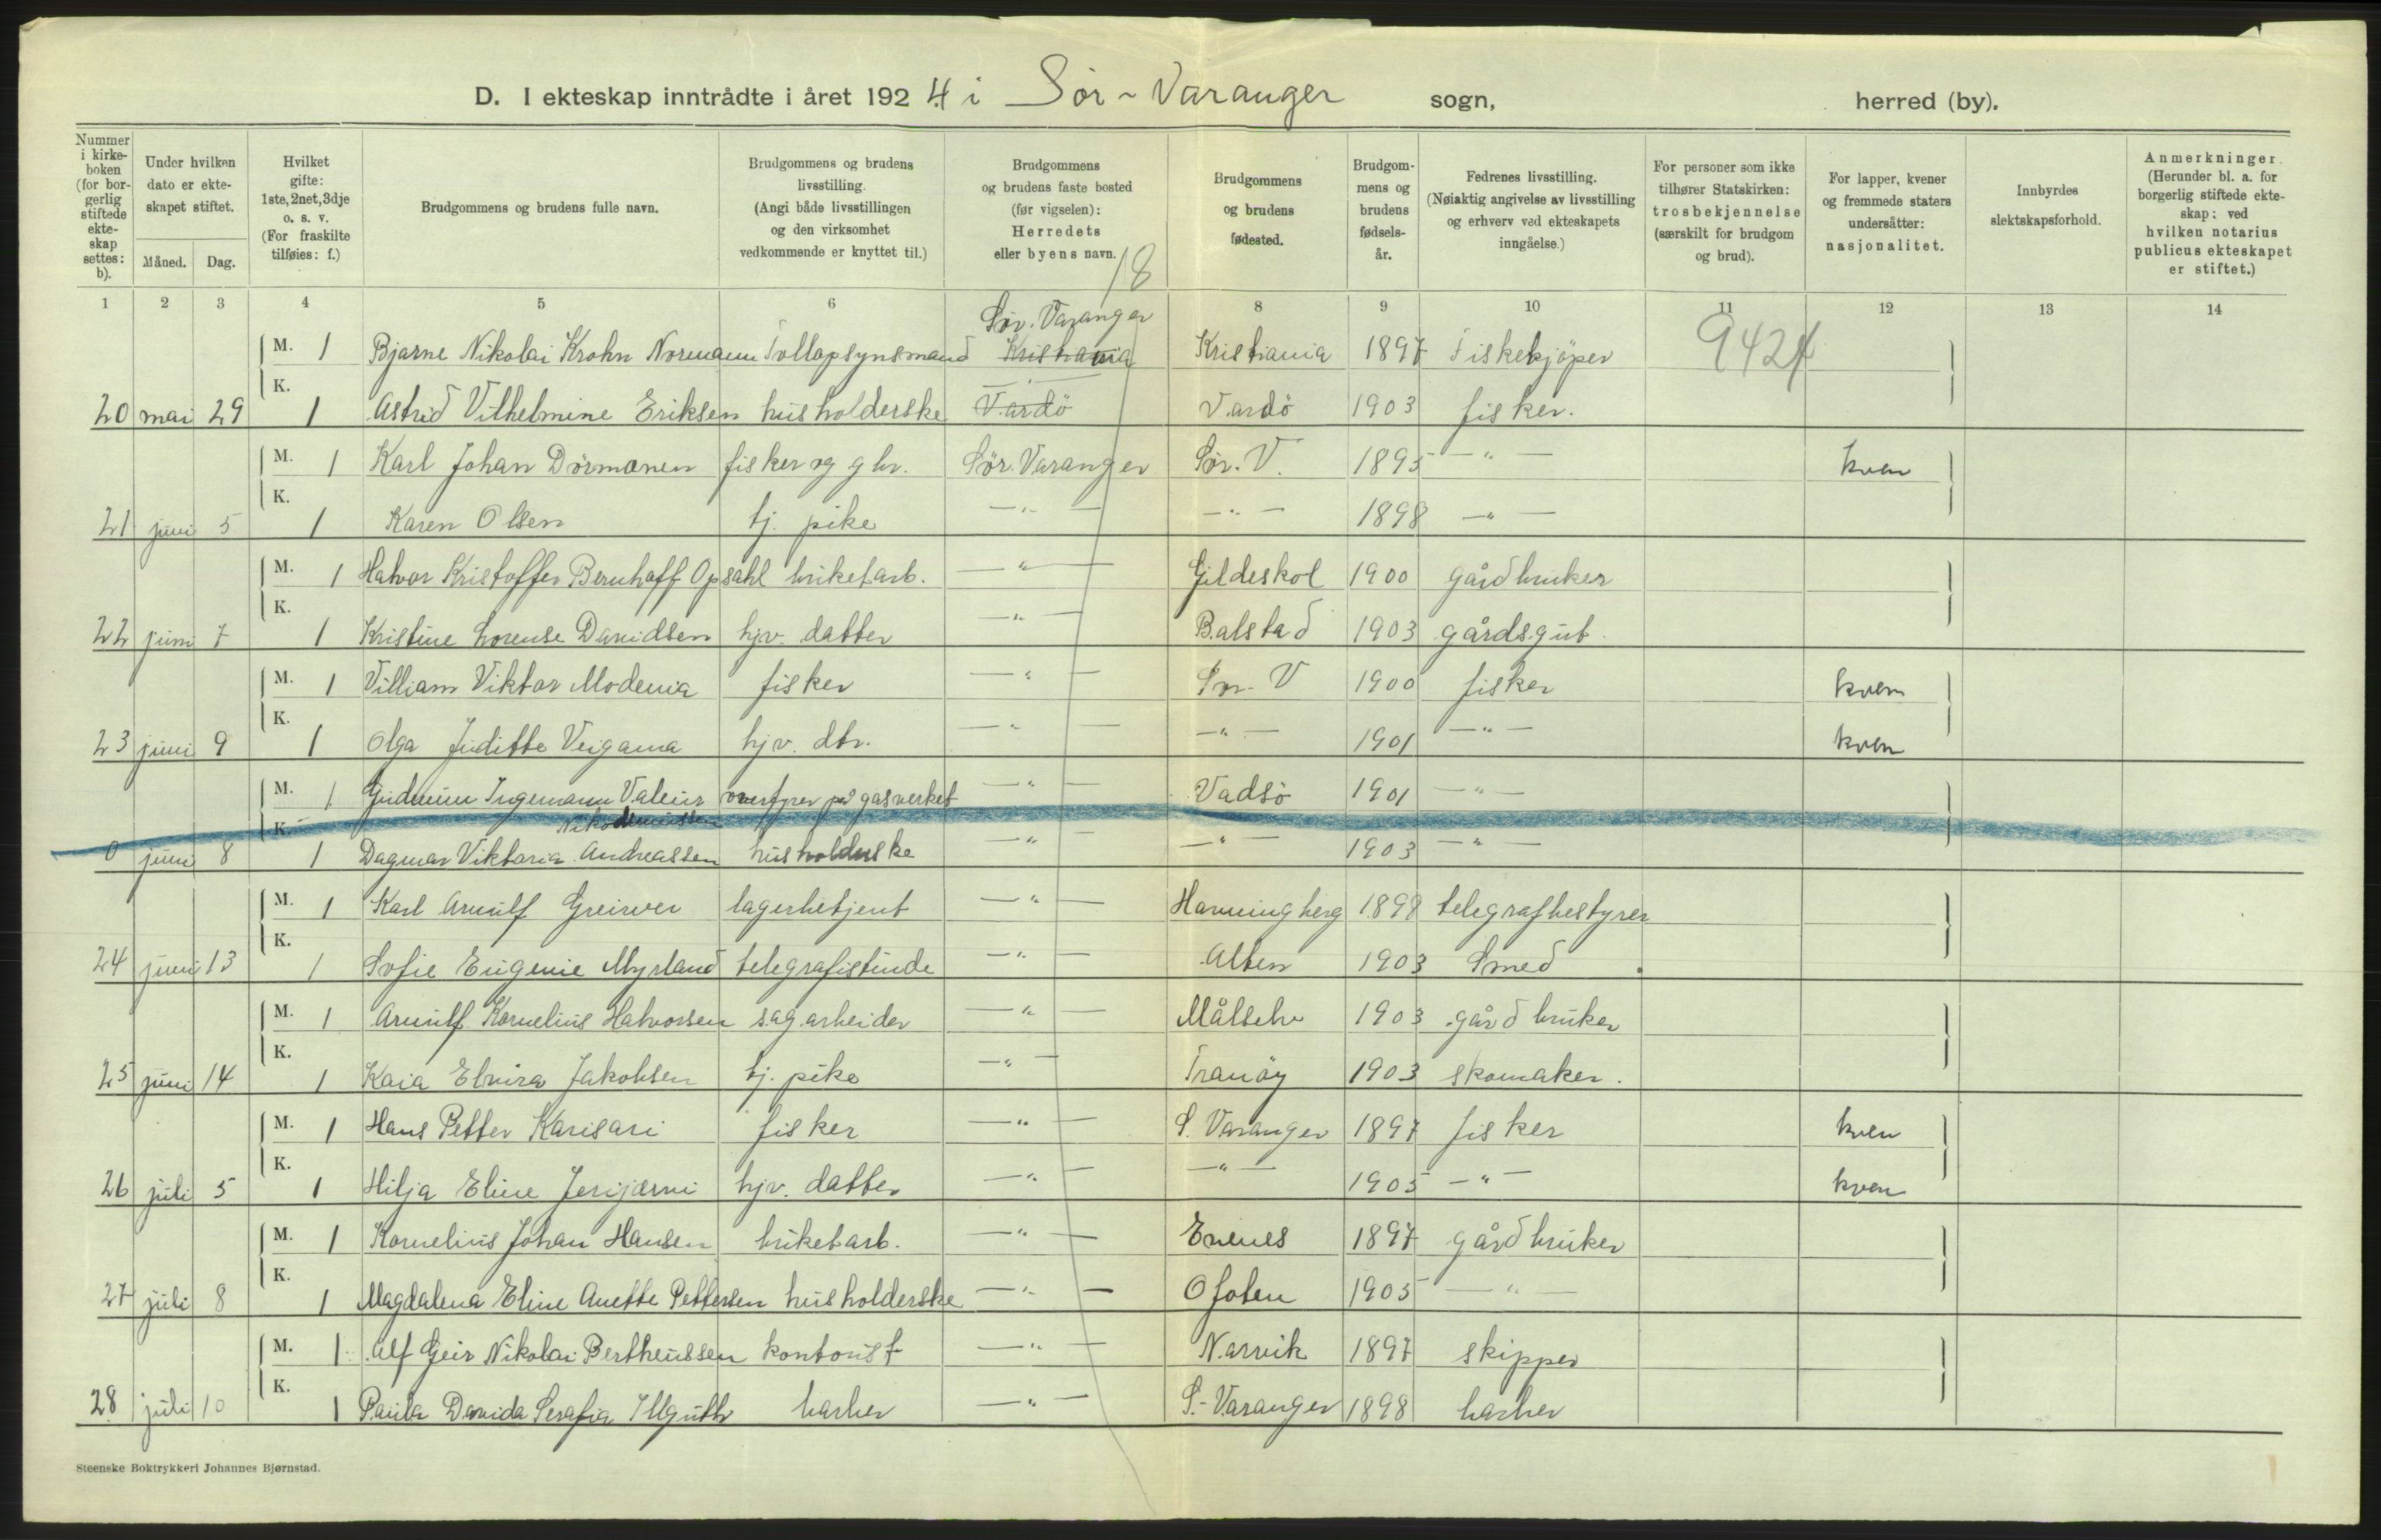 D. I ekteskap inntrådte i året 1924 i Sør-Varanger sogn, herred (by).
Nummer i kirke-boken (for bor-gerlig stiftede ekte-skap settes: b).
Under hvilken dato er ekte-skapet stiftet.
Måned. Dag.
Hvilket gifte: 1ste, 2net, 3dje o. s. v. (For fraskilte tilføies: f.)
Brudgommens og brudens fulle navn.
Brudgommens og brudens livsstilling. (Angi både livsstillingen og den virksomhet vedkommende er knyttet til.)
Brudgommens og brudens faste bosted (før vigselen): Herredets eller byens navn.
18
Brudgommens og brudens fødested.
Brudgom-mens og brudens fødsels-år.
Fedrenes livsstilling. (Nøiaktig angivelse av livsstilling og erhverv ved ekteskapets inngåelse.)
For personer som ikke tilhører Statskirken: trosbekjennelse (særskilt for brudgom og brud).
For lapper, kvener og fremmede staters undersåtter: nasjonalitet.
Innbyrdes slektskapsforhold.
Anmerkninger. (Herunder bl. a. for borgerlig stiftede ekte-skap: ved hvilken notarius publicus ekteskapet er stiftet.)
1 2 3 4 5 6 8 9 10 11 12 13 14
Sør. Varanger
M. 1 Bjarne Nikolai Krohn Normann Tollopsynsmand Kristiania Kristiania 1897 Fiskekjöper 9424
K.
20 mai 29 1 Astrid Vilhelmine Eriksen husholderske Vardö Vardö 1903 fisker.
M. 1 Karl Johan Dörmänen fisker og gbr. Sör. Varanger Sör. V. 1895 — " — kven
K.
21 juni 5 1 Karen Olsen tj. pike — " — — " — 1898 — " —
M. 1 Halvor Kristoffer Bernhoff Opsahl briketarb. — " — Gildeskol 1900 gårdbruker
K.
22 juni 7 1 Kristine Lorense Davidsen hjv. datter — " — Balstad 1903 gårdsgut.
M. 1 Villiam Viktor Modenia fisker — " — Sør. V 1900 fisker kven
K.
23 juni 9 1 Olga Juditte Veigama hjv. dtr. — " — — " — 1901 — " — kven
M. 1 Gudmun Ingemann Valeur overfyrer på gasverket — " — Vadsö 1901 — " —
K. Nikodemussen
0 juni 8 1 Dagmar Viktoria Andreassen husholderske — " — — " — 1903 — " —
M. 1 Karl Arnulf Greiner lagerbetjent — " — Havningberg 1898 telegrafbestyrer
K.
24 juni 13 1 Sofie Eugenie Myrland telegrafistinde — " — Alten 1903 Smed
M. 1 Arnulf Kornelius Halvorsen sagarbeider — " — Målselv 1903 gårdbruker
K.
25 juni 14 1 Kaia Elvira Jakobsen tj. pike — " — Tranöy 1903 skomaker.
M. 1 Hans Petter Karisari fisker — " — S. Varanger 1897 fisker kven
K.
26 juli 5 1 Hilja Eline Jerijærvi hjv. datter — " — — " — 1905 — " — kven
M. 1 Kornelius Johan Hansen briketarb. — " — Evenes 1897 gårdbruker
K.
27 juli 8 1 Magdalena Eline Anette Pettersen husholderske — " — Ofoten 1905 — " —
M. 1 Alf Geir Nikolai Bertheussen kontorist — " — Narvik 1897 skipper
K.
28 juli 10 1 Paula Davida Serafia barber — " — S.-Varanger 1898 barber
Steenske Boktrykkeri Johannes Bjørnstad.